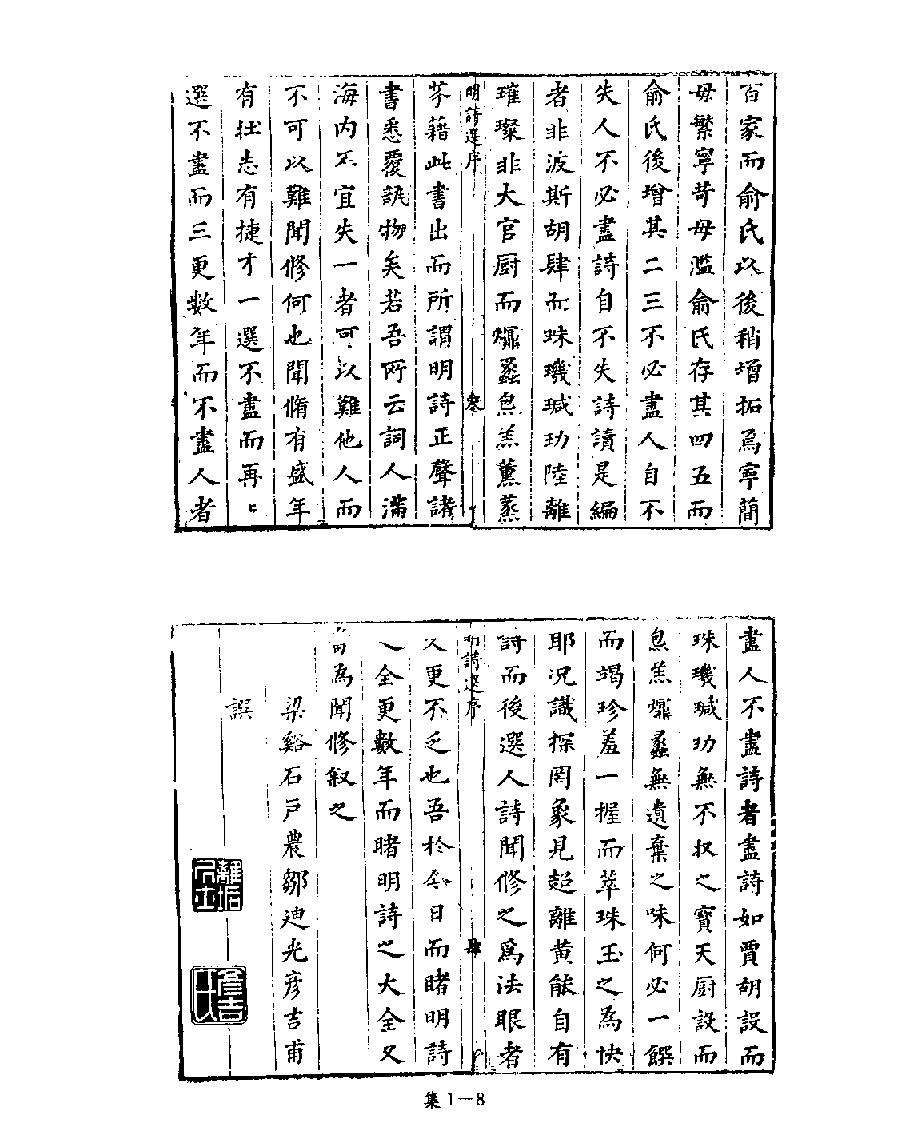 百家而俞氏以後稍增拓爲寧簡
毋繁寧苛毋濫俞氏存其四五而
俞氏後增其二三不必盡人自不
失人不必盡詩自不失詩讀是編
者非波斯胡肆而珠璣瑊玏陸離
璀璨非大官厨而爊鼈炰羔薰蒸
明詩選序 叁
芬藉此書出而所謂明詩正聲諸
書悉覆瓿物矣若吾所云詞人滿
海内不宜失一者可以難他人而
不可以難聞修何也聞脩有盛年
有壯志有捷才一選不盡而再〻
選不盡而三更數年而不盡人者
盡人不盡詩者盡詩如賈胡設而
珠璣瑊玏無不収之寶天厨設而
炰羔爊鼈無遺棄之味何必一饌
而竭珍羞一握而萃珠玉之爲快
耶况識探罔象見超離黄能自有
詩而後選人詩聞修之爲法眼者
明詩選序 肆
又更不乏也吾於今日而睹明詩
之全更數年而睹明詩之大全又
爲聞修叙之
梁谿石戸農鄒迪光彦吉甫
譔
集1—8